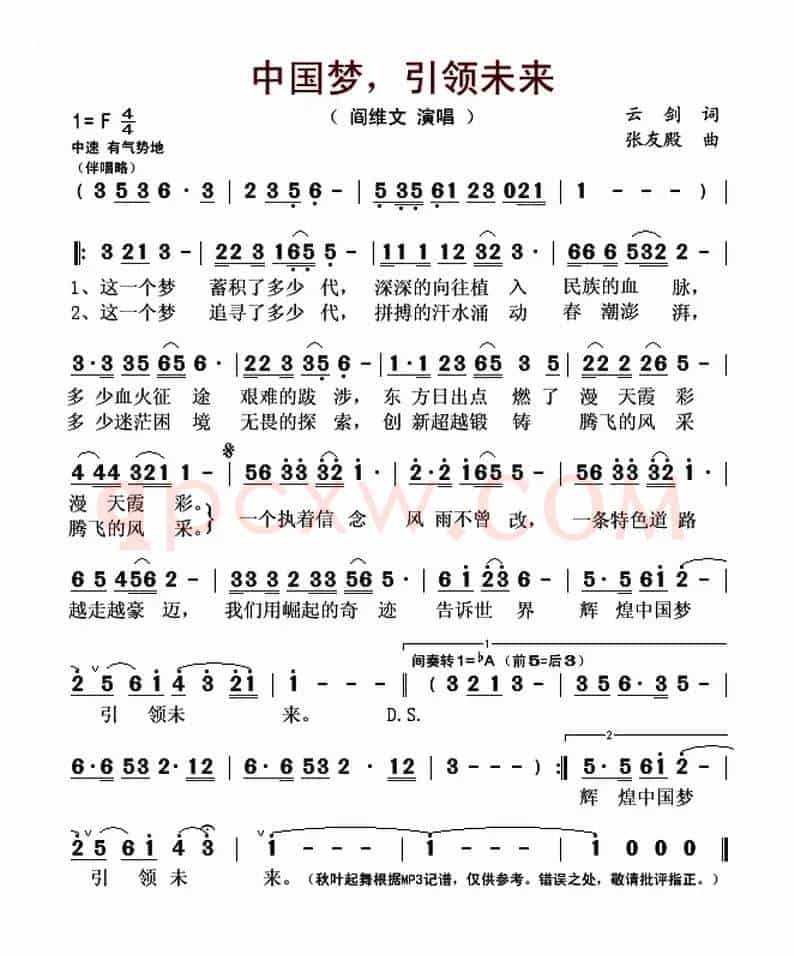 中国梦，引领未来
1= F 4/4
（ 阎维文 演唱 ）
云 剑 词
张友殿 曲
中速 有气势地
（伴唱略）
( 3 5 3 6 · 3 | 2 3 5 6 - | 5 35 61 23 021 | 1 - - - )
‖: 3 21 3 - | 22 3 165 5 - | 11 1 12 32 3 · | 66 6 532 2 - |
1、这一个梦 蓄积了多少 代， 深深的向往植 入 民族的血 脉，
2、这一个梦 追寻了多少 代， 拼搏的汗水涌 动 春 潮澎 湃，
3·3 35 65 6 · | 22 3 35 5 - | 1·1 23 65 3 5 | 22 2 26 5 |
多 少血火征 途 艰难的跋 涉， 东 方日出点 燃了 漫 天霞 彩
多 少迷茫困 境 无畏的探 索， 创 新超越锻 铸 腾飞的风 采
4 44 321 1 - | 56 33 32 1 · | 2·2 165 5 - | 56 33 32 2 · |
漫 天霞 彩。
腾飞的风 采。 } 一个执着信 念 风 雨不曾 改， 一条特色道 路
6 5 456 2 - | 33 3 2 33 56 5 · | 6 1 23 6 - | 5·5 61 2 - |
越走越豪 迈， 我们用崛起的奇 迹 告诉世 界 辉 煌中国梦
1
间奏转1=♭A（前5=后3）
2 5 61 4 3 21 | 1 - ‖ ( 3 21 3 - | 35 6·3 5 - |
引 领未 来。 D.S.
6·6 53 2·12 | 6·6 53 2·12 | 3 - - ) :‖ 5·5 61 2 - |
2
辉 煌中国梦
2 5 61 4 3 | 1 - - - | 1 - - - | 1 0 0 0 ‖
引 领 未 来。（秋叶起舞根据MP3记谱，仅供参考。错误之处，敬请批评指正。）
qpcxw.COM